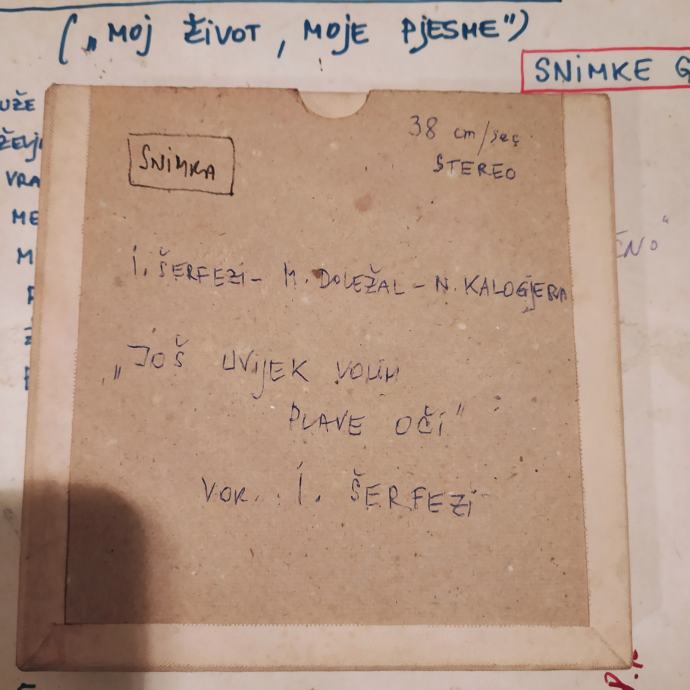 („MOJ ŽIVOT, MOJE PJESME")
SNIMKE G
UŽE
ŽELJ
VRA
ME
M
38 cm/sec
STEREO
SNIMKA
I. ŠERFEZI - M. DOLEŽAL - N. KALOGJERA
„JOŠ UVIJEK VOLIM
PLAVE OČI"
VOK. I. ŠERFEZI